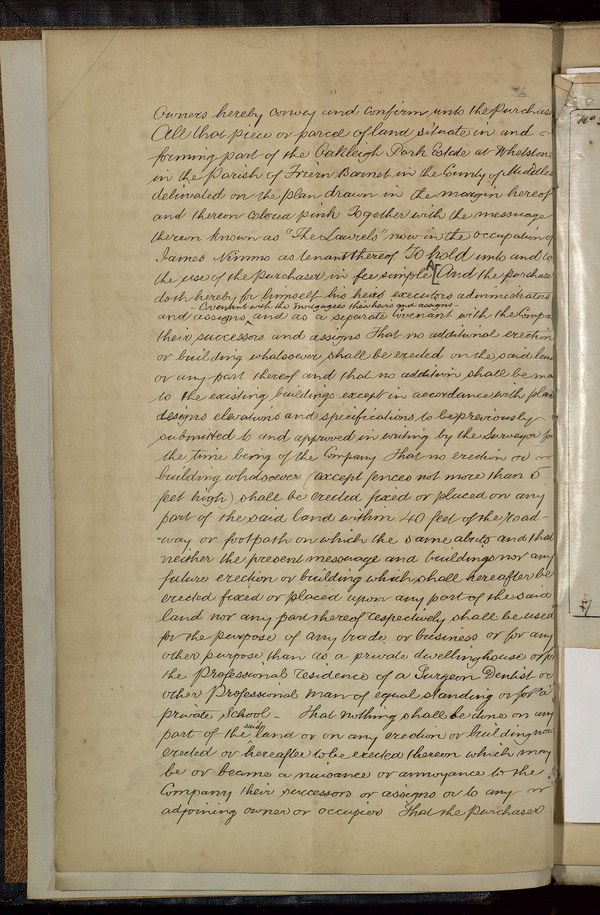 Owners hereby convey and confirm unto the Purchas
All that piece or parcel of land situate in and
forming part of the Oakleigh Park Estate at Whetstone
in the Parish of Friern Barnet in the County of Middle
delineated on the plan drawn in the margin hereof
and thereon colored pink Together with the messuage
thereon known as "The Laurels" now in the occupation of
James Nimmo as tenant thereof To hold unto and to
the use of the purchaser in fee simple [And the purchase
doth hereby for himself his heirs executors administrators
Covenant with the Mortgagees their heirs and assigns
and assigns and as a separate Covenant with the Compa
their successors and assigns That no additional erection
or building whatsoever shall be erected on the said lan
or any part thereof and that no addition shall be ma
to the existing buildings except in accordance with plan
designs elevations and specifications to be previously
submitted to and approved in writing by the Surveyor for
the time being of the Company That no erection or
building whatsoever (except fences not more than 5
feet high) shall be erected fixed or placed on any
part of the said land within 40 feet of the road-
way or footpath on which the same abuts and that
neither the present messuage and buildings nor any
future erection or building which shall hereafter be
erected fixed or placed upon any part of the said
land nor any part thereof respectively shall be used
for the purpose of any trade or business or for any
other purpose than as a private dwellinghouse or for
the Professional residence of a Surgeon Dentist or
other Professional man of equal standing or for a
private School - That nothing shall be done on any
said
part of the land or on any erection or building now
erected or hereafter to be erected thereon which may
be or become a nuisance or annoyance to the
Company their successors or assigns or to any
adjoining owner or occupier That the Purchaser